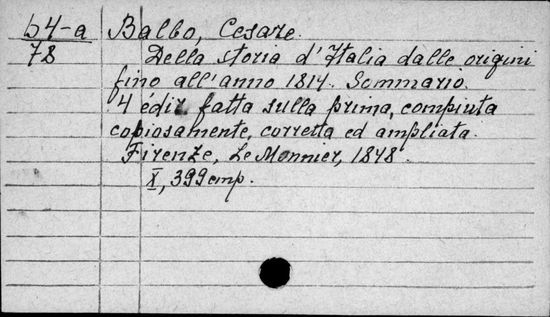 b4-a
78
Balbo, Cesare.
Della storia d'Italia dalle origini
fino all'anno 1814. Sommario.
4 édiz. fatta sulla prima, compiuta
copiosamente, corretta ed ampliata.
Firenze, Le Monnier, 1848.
X, 399